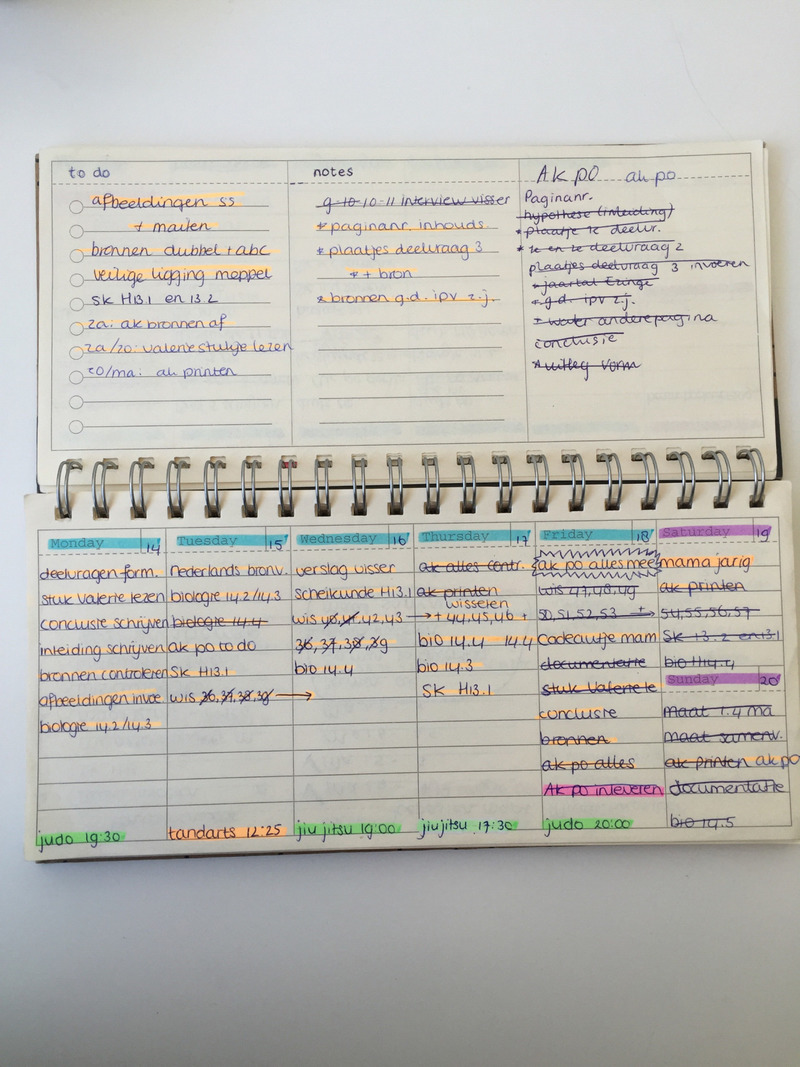 to do
afbeeldingen ss
+ mailen
bronnen dubbel + abc
veilige ligging meppel
SK H13.1 en 13.2
za: ak bronnen af
za/zo: valerie stukje lezen
zo/ma: ak printen
notes
9-10-10-11 interview visser
* paginanr. inhouds.
* plaatjes deelvraag 3
* + bron
* bronnen g.d. ipv z.j.
AK PO ak po
Paginanr.
hypothese (inleiding)
* plaatje 1e deelvr.
* 1e en 2e deelvraag 2
plaatjes deelvraag 3 invoeren
* jaartal
* g.d. ipv z.j.
+ water andere pagina
conclusie
* uitleg vorm
Monday 14
deelvragen form.
stuk Valerie lezen
conclusie schrijven
inleiding schrijven
bronnen controleren
afbeeldingen invoe
biologie 14.2/14.3
judo 19:30
Tuesday 15
Nederlands bronv.
biologie 14.2/14.3
biologie 14.4
ak po to do
SK H13.1
wis 36, 37, 38, 39 →
tandarts 12:25
Wednesday 16
verslag visser
scheikunde H13.1
wis 40, 41, 42, 43
36, 37, 38, 39
bio 14.4
jiu jitsu 19:00
Thursday 17
ak alles contr.
ak printen
wisselen
→ + 44, 45, 46 +
bio 14.4 14.4
bio 14.3
SK H13.1
jiu jitsu 17:30
Friday 18
ak po alles mee
wis 47, 48, 49
50, 51, 52, 53 →
Cadeautje mam
documentatie
stuk Valerie le
conclusie
bronnen
ak po alles
AK po inleveren
judo 20:00
Saturday 19
mama jarig
ak printen
54, 55, 56, 57
SK 13.2 en 13.1
bio H14.4
Sunday 20
maat 1.4 ma
maat samenv.
ak printen ak po
documentatie
bio 14.5